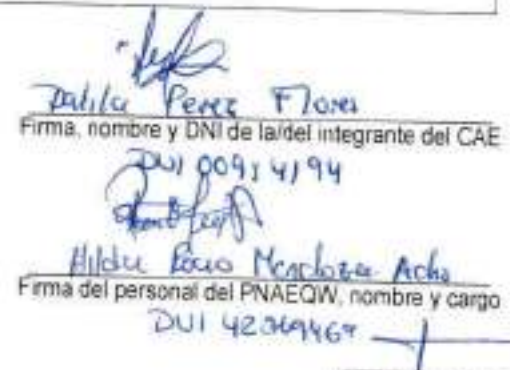 Dalila Perez Flores
Firma, nombre y DNI de la/del integrante del CAE
DNI 00914194
Hilda Rocio Mendoza Acho
Firma del personal del PNAEQW, nombre y cargo
DNI